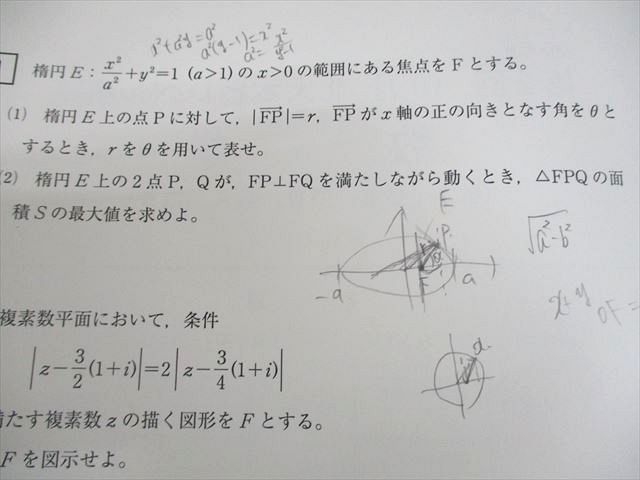 x²+a²y=a²
a²(y-1)=x²
a²=x²/y-1
1 楕円E：x²/a²+y²=1 (a>1)のx>0の範囲にある焦点をFとする。
(1) 楕円E上の点Pに対して，|FP|=r，FPがx軸の正の向きとなす角をθと
するとき，rをθを用いて表せ。
(2) 楕円E上の2点P，Qが，FP⊥FQを満たしながら動くとき，△FPQの面
積Sの最大値を求めよ。
E
P
√a²-b²
-a
a
OF=
複素数平面において，条件
|z-3/2(1+i)|=2|z-3/4(1+i)|
たす複素数zの描く図形をFとする。
Fを図示せよ。